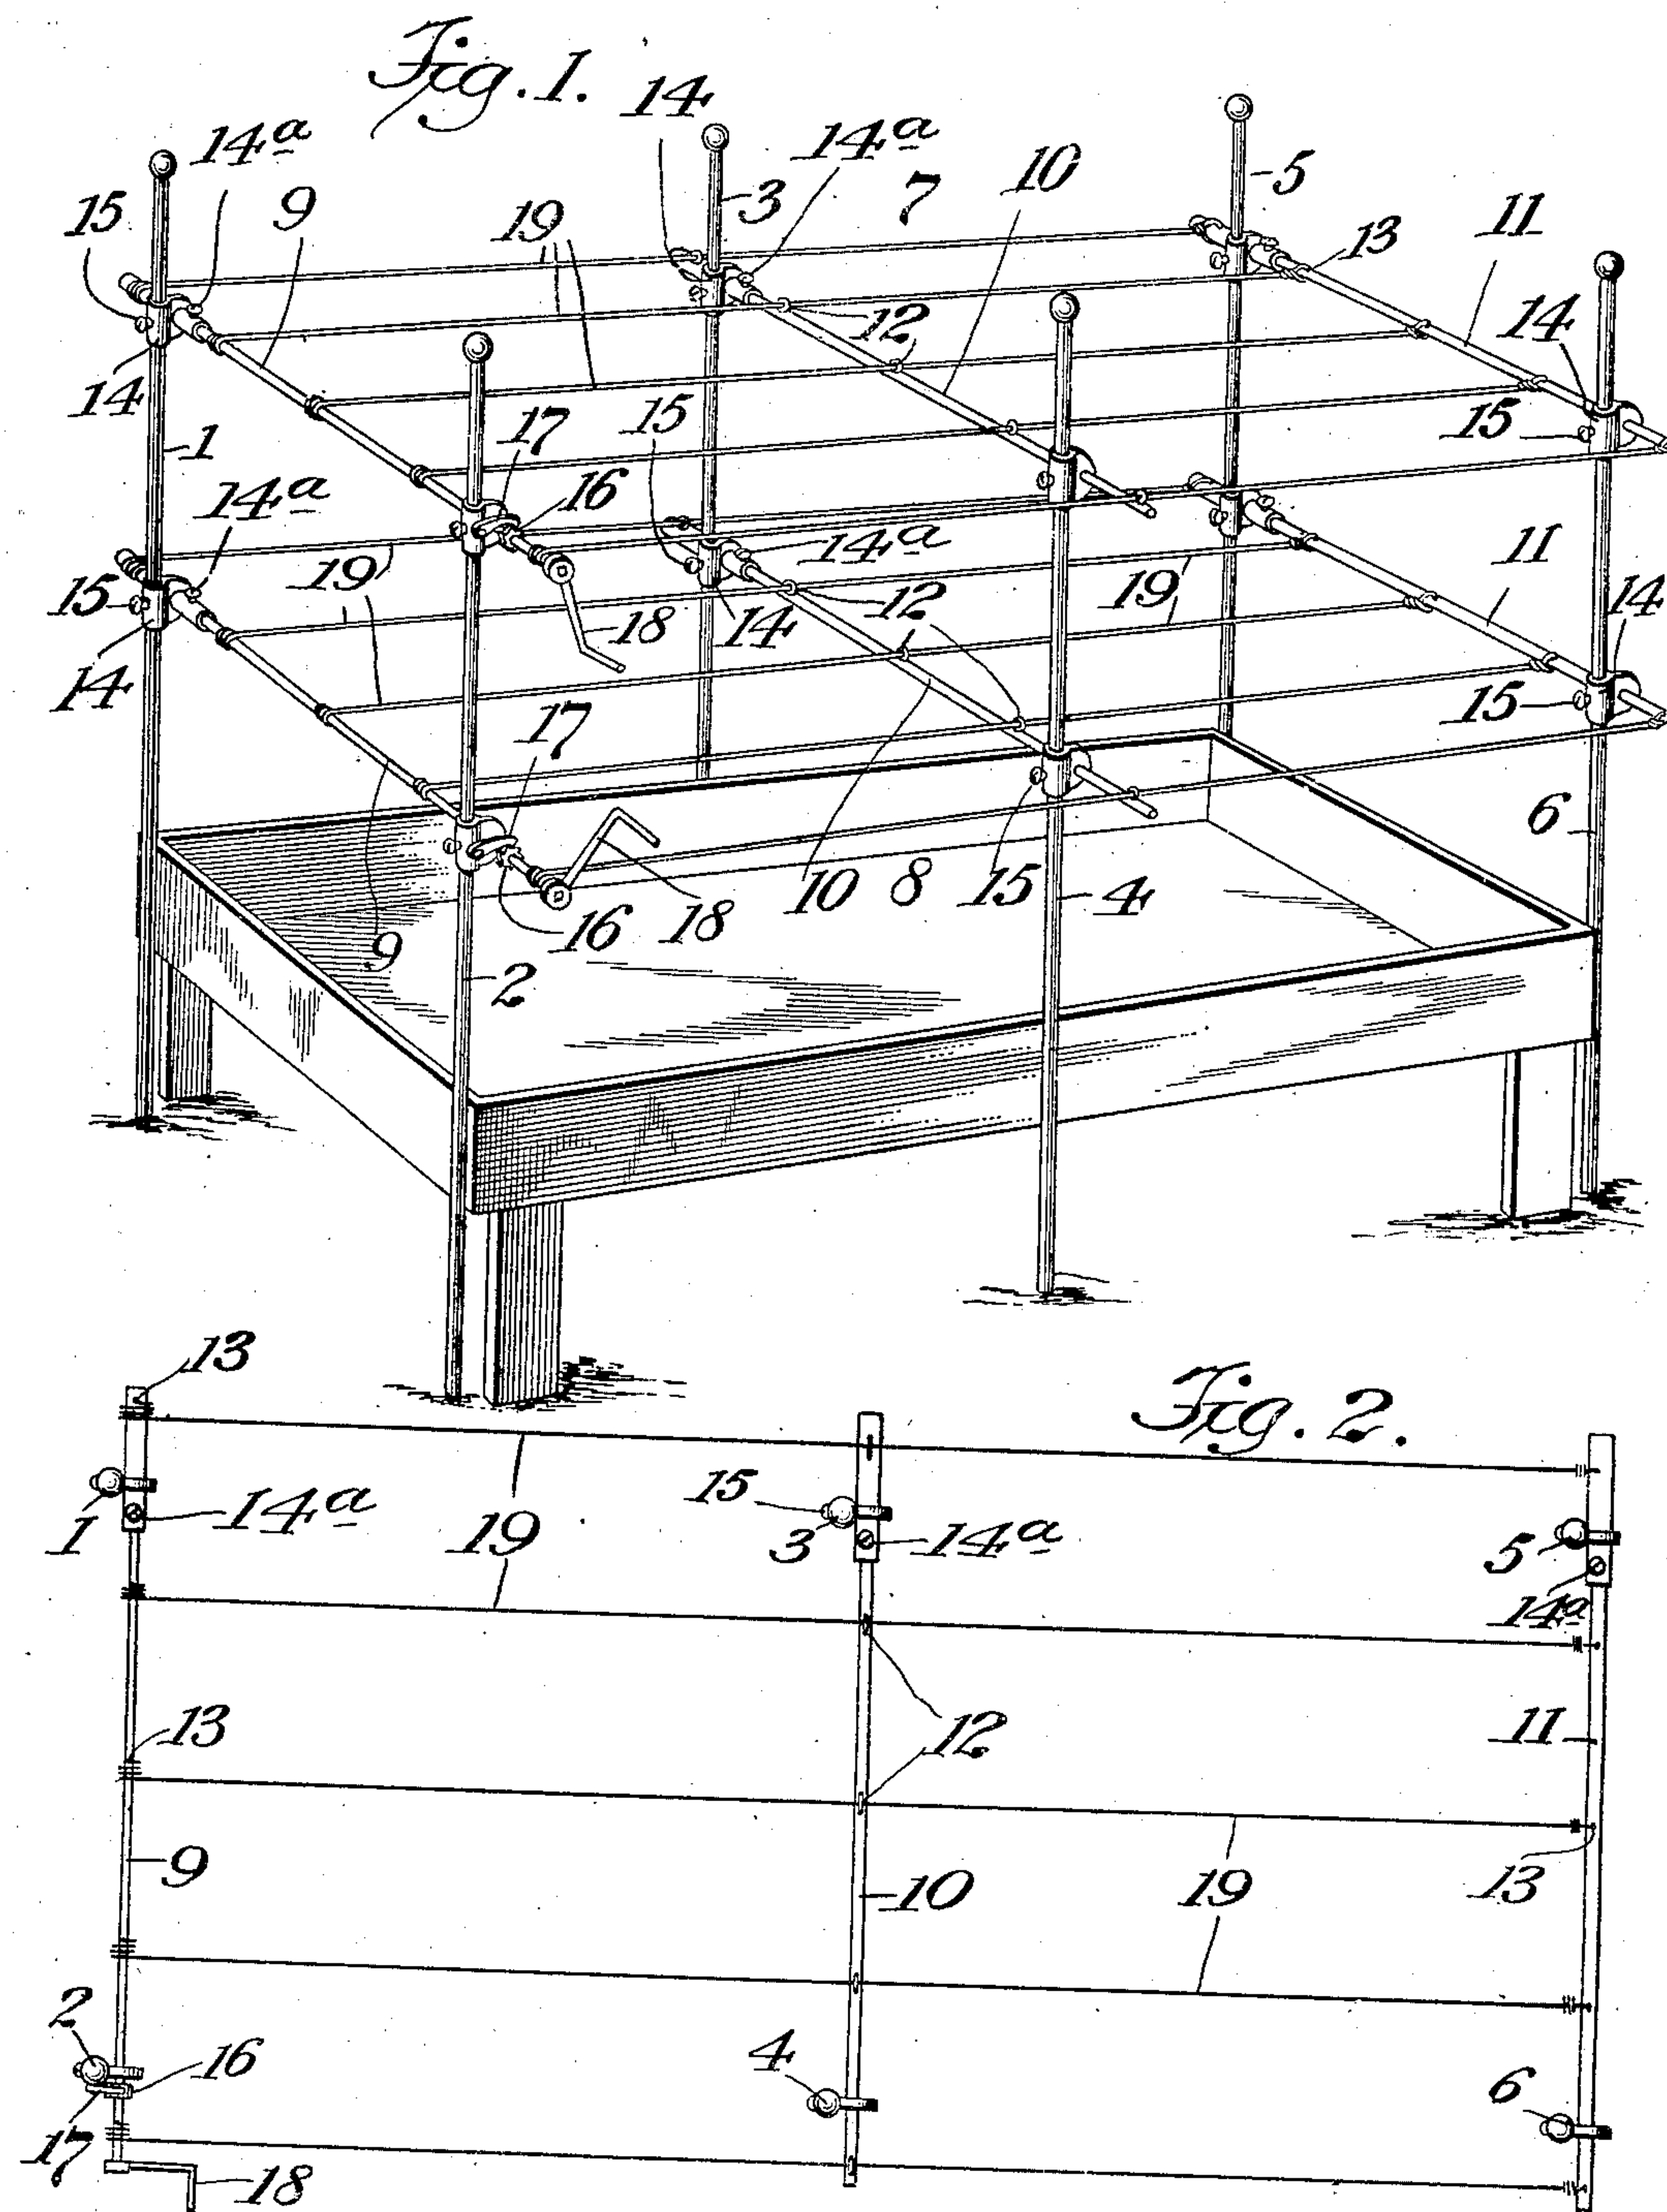 Fig. 1.
14
14a
14a
3
7
10
5
15
9
19
13
11
12
14
14
15
17
15
1
16
14a
14a
11
19
12
19
14
15
14
18
14
15
17
6
10
8
15
4
9
16
18
2
13
Fig. 2.
1
14a
19
15
3
14a
5
14a
13
12
11
9
10
19
13
2
16
4
6
17
18